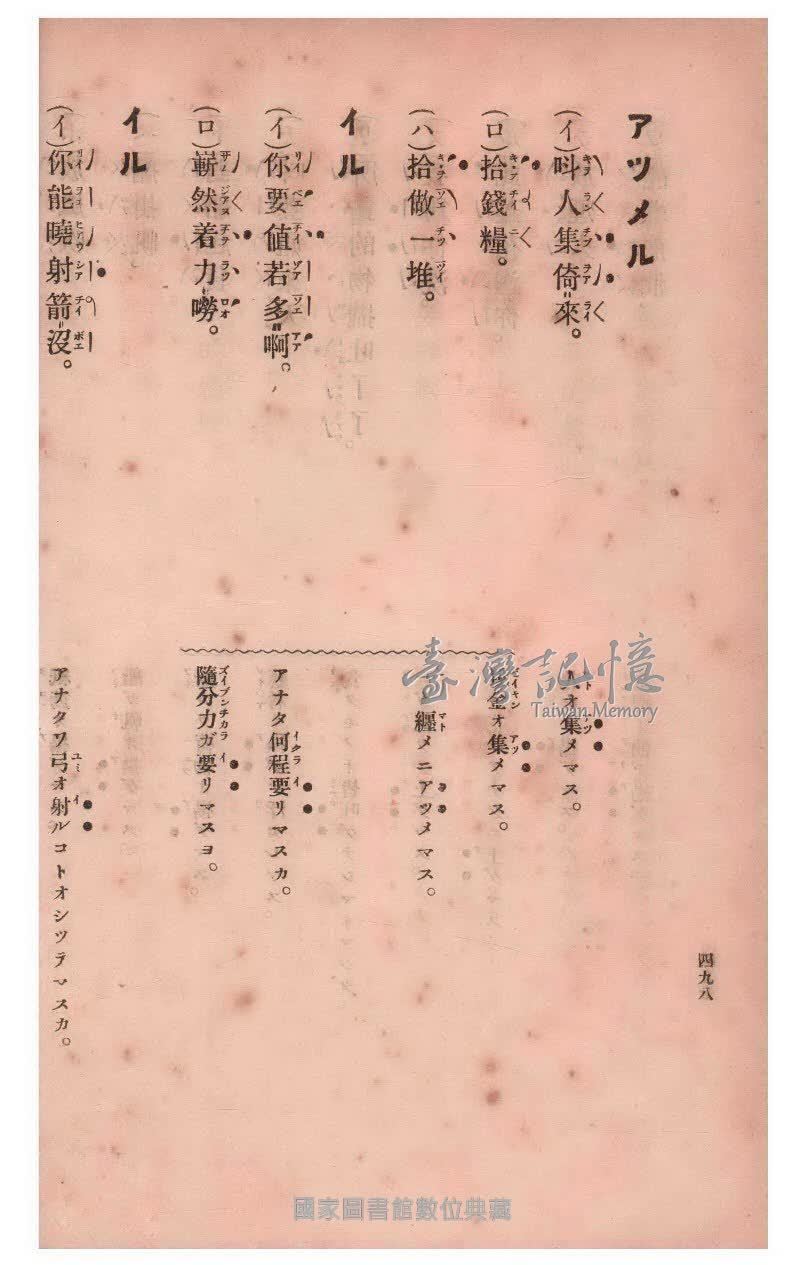 四九八
アツメル
(イ)呌人集倚來。
人オ集メマス。
(ロ)拾錢糧。
金オ集メマス。
(ハ)拾做一堆。
纒メニアツメマス。
イル
(イ)你要値若多啊。
アナタ何程要リマスカ。
(ロ)嶄然着力嘮。
隨分力ガ要リマスヨ。
イル
(イ)你能曉射箭沒。
アナタワ弓オ射ルコトオシツテマスカ。
臺灣記憶
Taiwan Memory
國家圖書館數位典藏